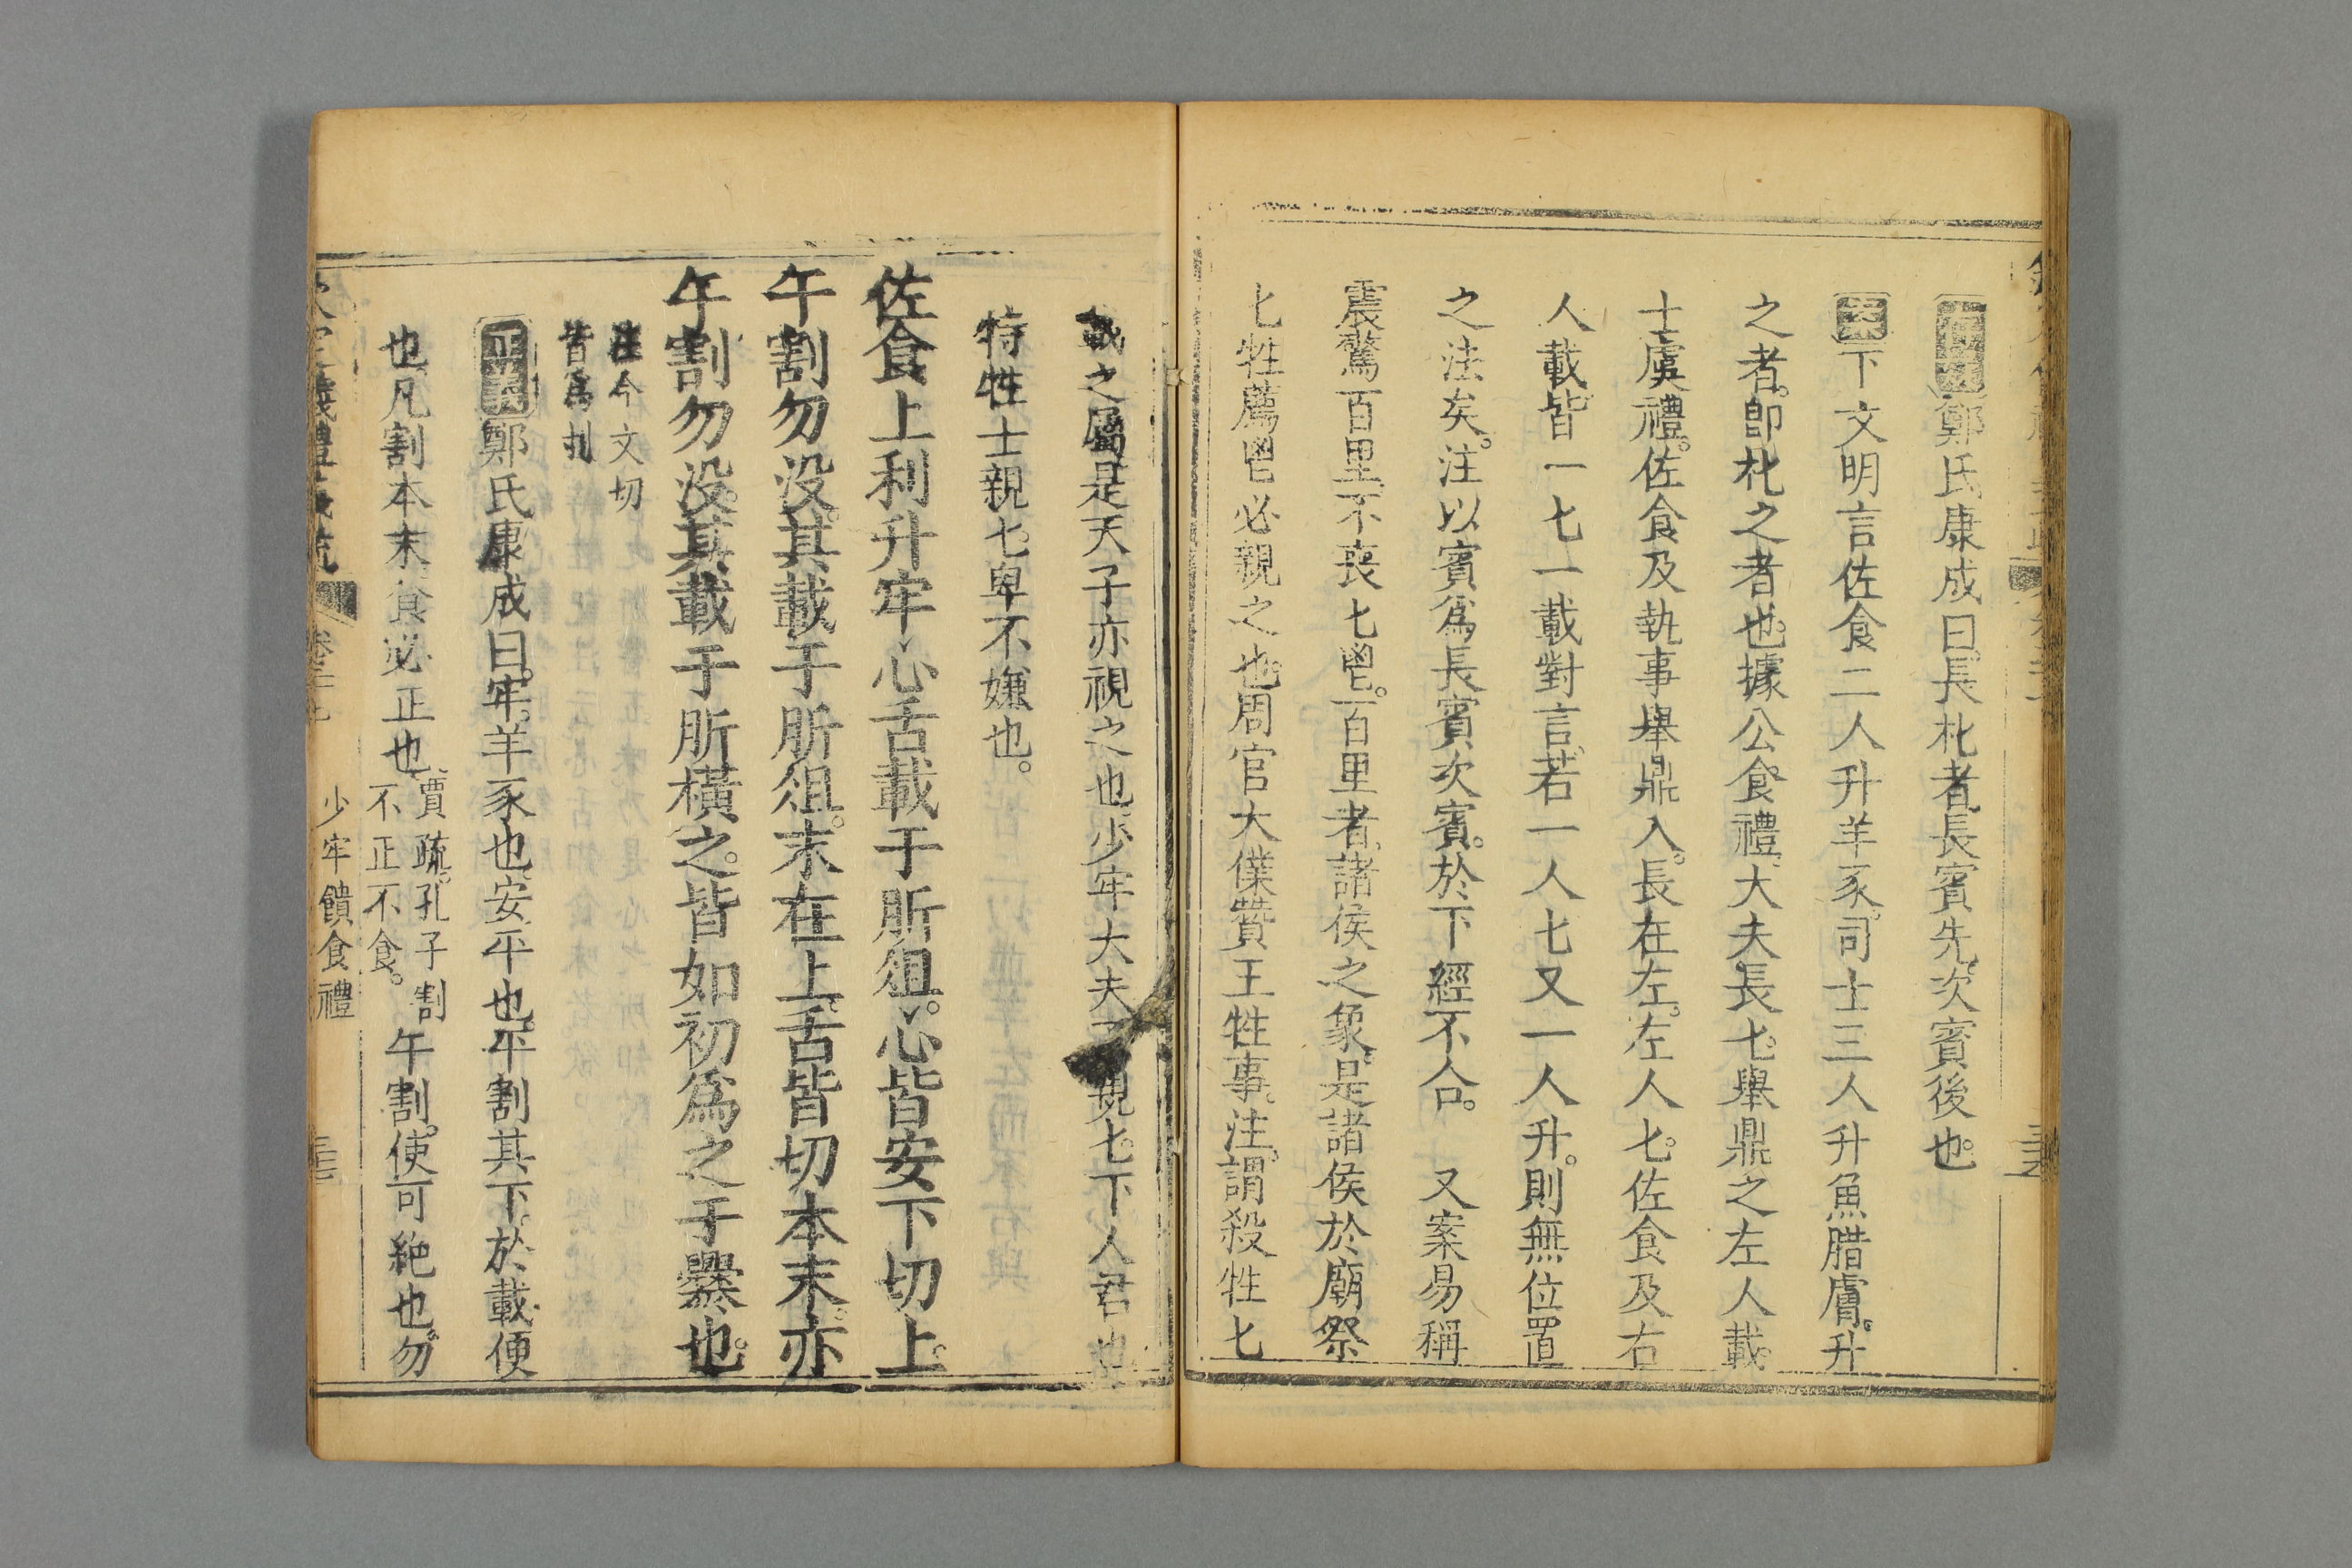 鄭氏康成曰長朼者長賓先次賓後也
案下文明言佐食二人升羊豕司士三人升魚腊膚升
之者卽朼之者也據公食禮大夫長匕舉鼎之左人載
士虞禮佐食及執事舉鼎入長在左左人匕佐食及右
人載皆一匕一載對言若一人匕又一人升則無位置
之法矣注以賓爲長賓次賓於下經不合　又案易稱
震驚百里不喪匕鬯百里者諸侯之象是諸侯於廟祭
匕牲薦鬯必親之也周官大僕贊王牲事注謂殺牲匕
載之屬是天子亦視之也少牢大夫不親匕下人君也
特牲士親匕卑不嫌也
佐食上利升牢心舌載于肵俎心皆安下切上
午割勿沒其載于肵俎末在上舌皆切本末亦
午割勿沒其載于肵橫之皆如初爲之于爨也
注今文切
皆爲刌
正義鄭氏康成曰牢羊豕也安平也平割其下於載便
也凡割本末食必正也
賈疏孔子割
不正不食
午割使可絕也勿
欽定儀禮義疏
少牢饋食禮